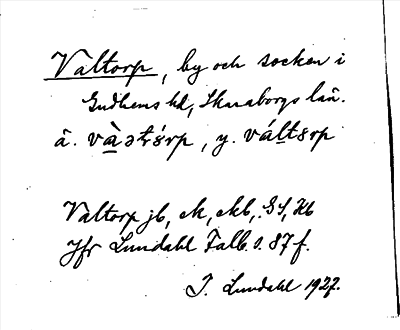 Valtorp, by och socken i
Gudhems hd, Skaraborgs län.
ä. , y.
Valtorp jb, ek, ekb, GS, Kb
Jfr Lundahl Falb. s. 87 f.
I. Lundahl 1927.